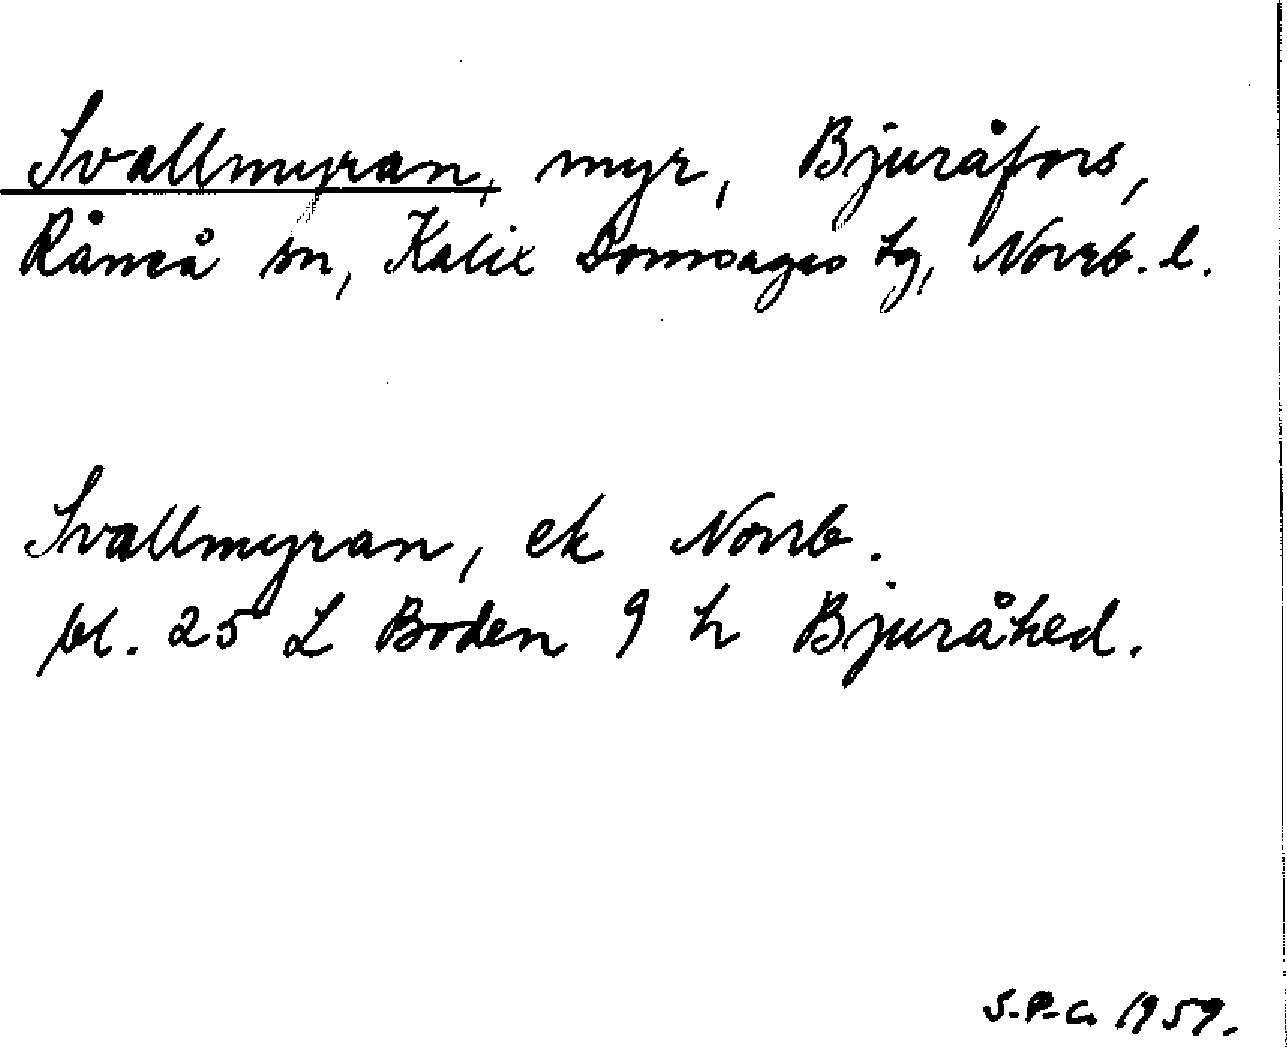 Svallmyran, myr, Bjuråfors,
Råneå sn, Kalix Domsagas tg, Norrb. l.
Svallmyran, ek Norrb.
bl. 25 L Boden 9 h Bjuråhed.
S.P.G. 1959.